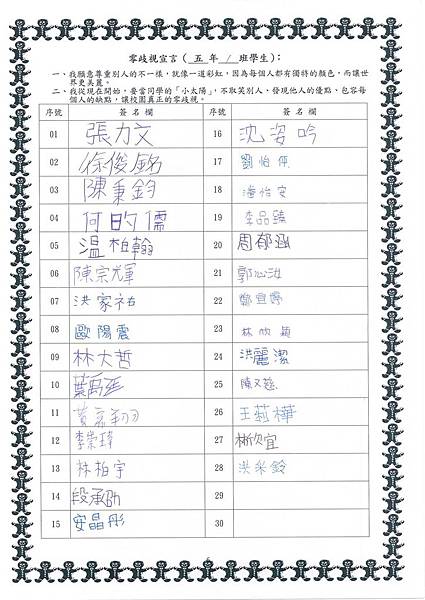 零歧視宣言(五年1班學生)：
一、我願意尊重別人的不一樣，就像一道彩虹，因為每個人都有獨特的顏色，而讓世
界更美麗。
二、我從現在開始，要當同學的「小太陽」，不取笑別人、發現他人的優點、包容每
個人的缺點，讓校園真正的零歧視。
序號 簽名欄 序號 簽名欄
01 張力文 16 沈姿吟
02 徐俊銘 17 劉怡
03 陳秉鈞 18 潘怡安
04 何昀儒 19 李品臻
05 溫柏翰 20 周郁涵
06 陳宗輝 21 郭沁洪
07 洪家祐 22 鄭宜婷
08 歐陽震 23 林欣穎
09 林大哲 24 洪麗潔
10 葉禹廷 25 陳又慈
11 黃翔羽 26 王莉樺
12 李崇瑋 27 林欣宜
13 林柏宇 28 洪采鈴
14 段承劭 29
15 安晶彤 30
6